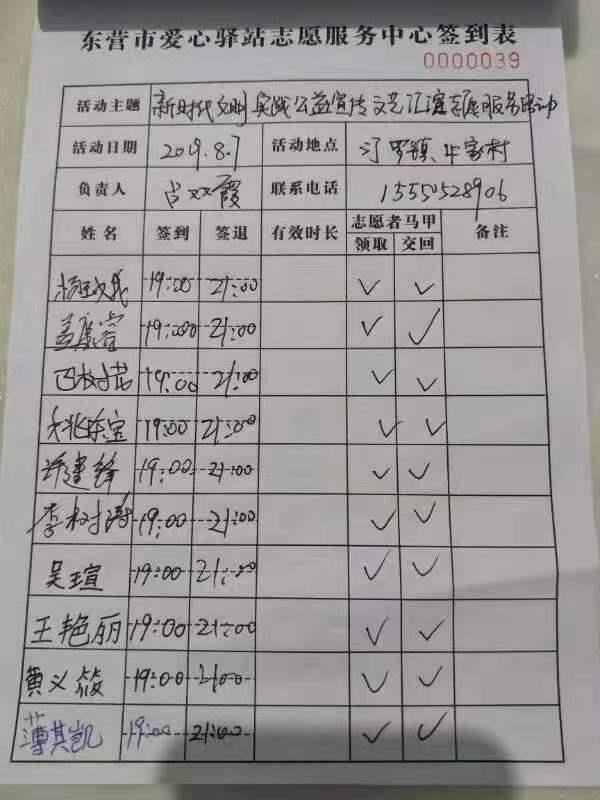 东营市爱心驿站志愿服务中心签到表
0000039
活动主题 新时代文明实践公益宣传文艺汇演志愿服务活动
活动日期 2019.8.7 活动地点 汀罗镇、毕家村
负责人 占双霞 联系电话 15550528906
姓名 签到 签退 有效时长 志愿者马甲 备注
领取 交回
19:00 21:00 ✓ ✓
孟康睿 19:00 21:00 ✓ ✓
19:00 21:00 ✓ ✓
19:00 21:00 ✓ ✓
许建锋 19:00 21:00 ✓ ✓
李树涛 19:00 21:00 ✓ ✓
吴瑄 19:00 21:00 ✓ ✓
王艳丽 19:00 21:00 ✓ ✓
黄义筱 19:00 21:00 ✓ ✓
薄其凯 19:00 21:00 ✓ ✓